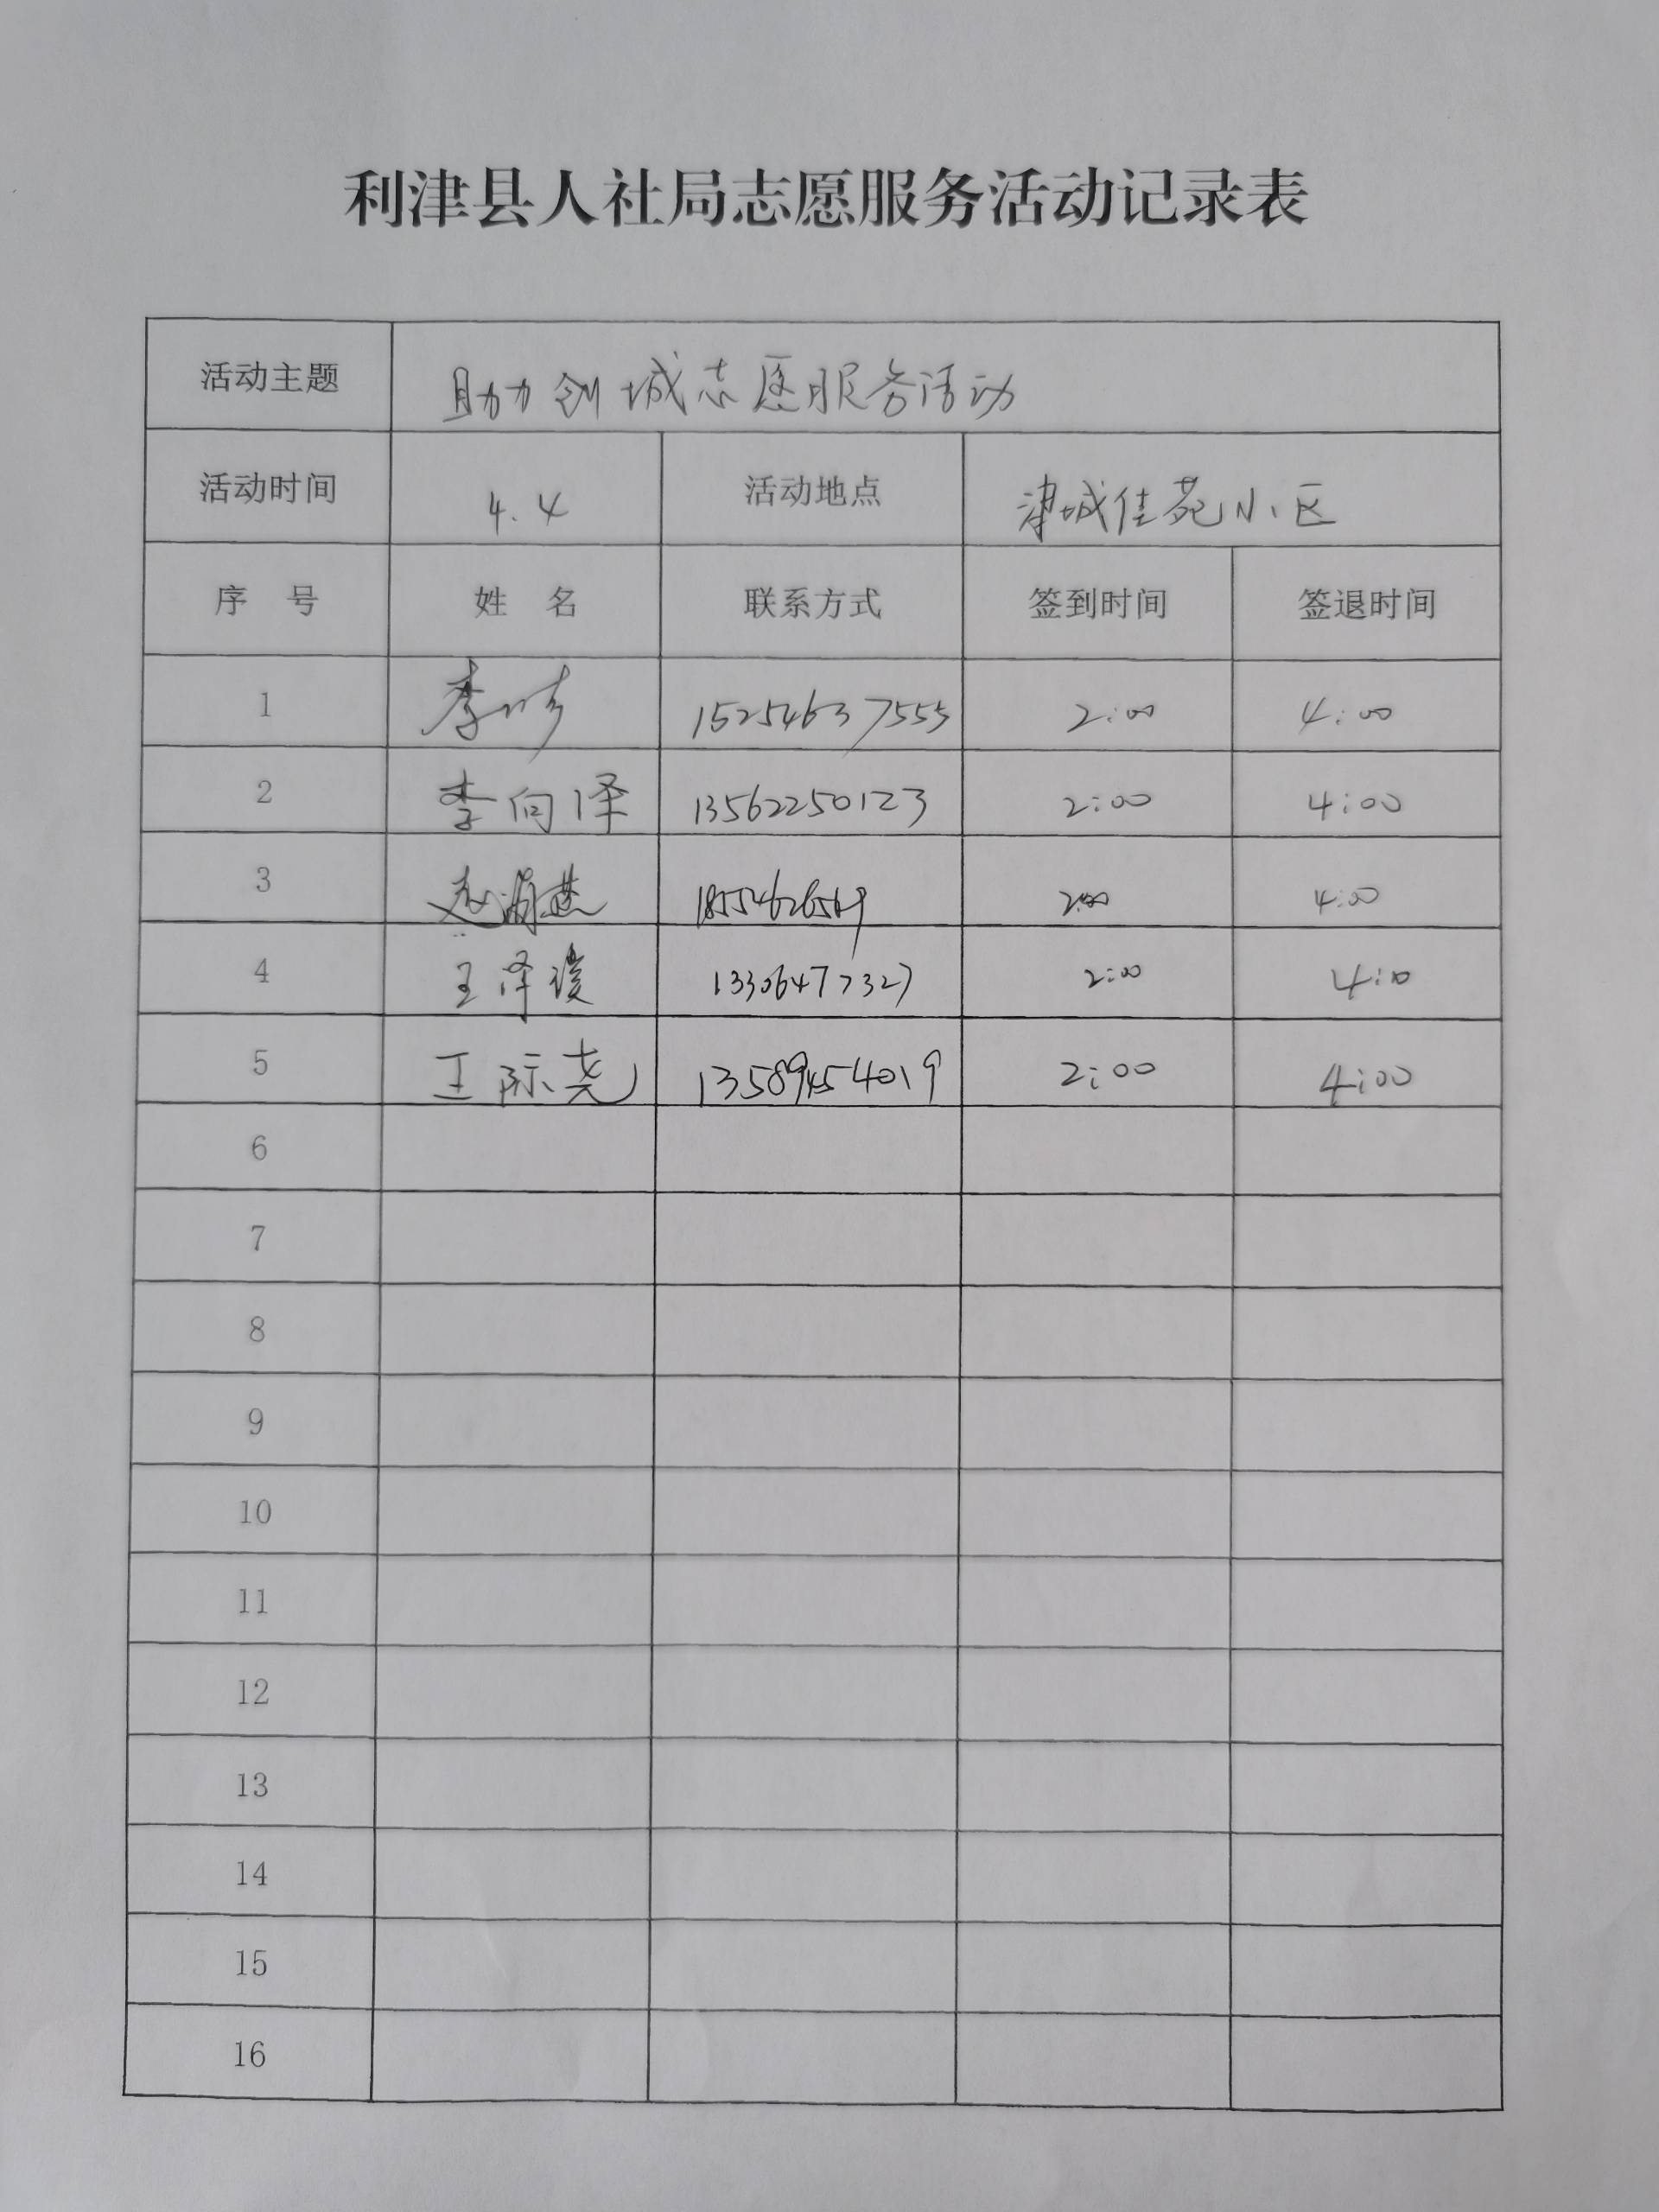 利津县人社局志愿服务活动记录表
活动主题 助力创城志愿服务活动
活动时间 4.4 活动地点 津城佳苑小区
序 号 姓 名 联系方式 签到时间 签退时间
1 李 15254637555 2:00 4:00
2 李向泽 13562250123 2:00 4:00
3 18554626569 2:00 4:00
4 王泽 13306477327 2:00 4:00
5 王际尧 13589454019 2:00 4:00
6
7
8
9
10
11
12
13
14
15
16